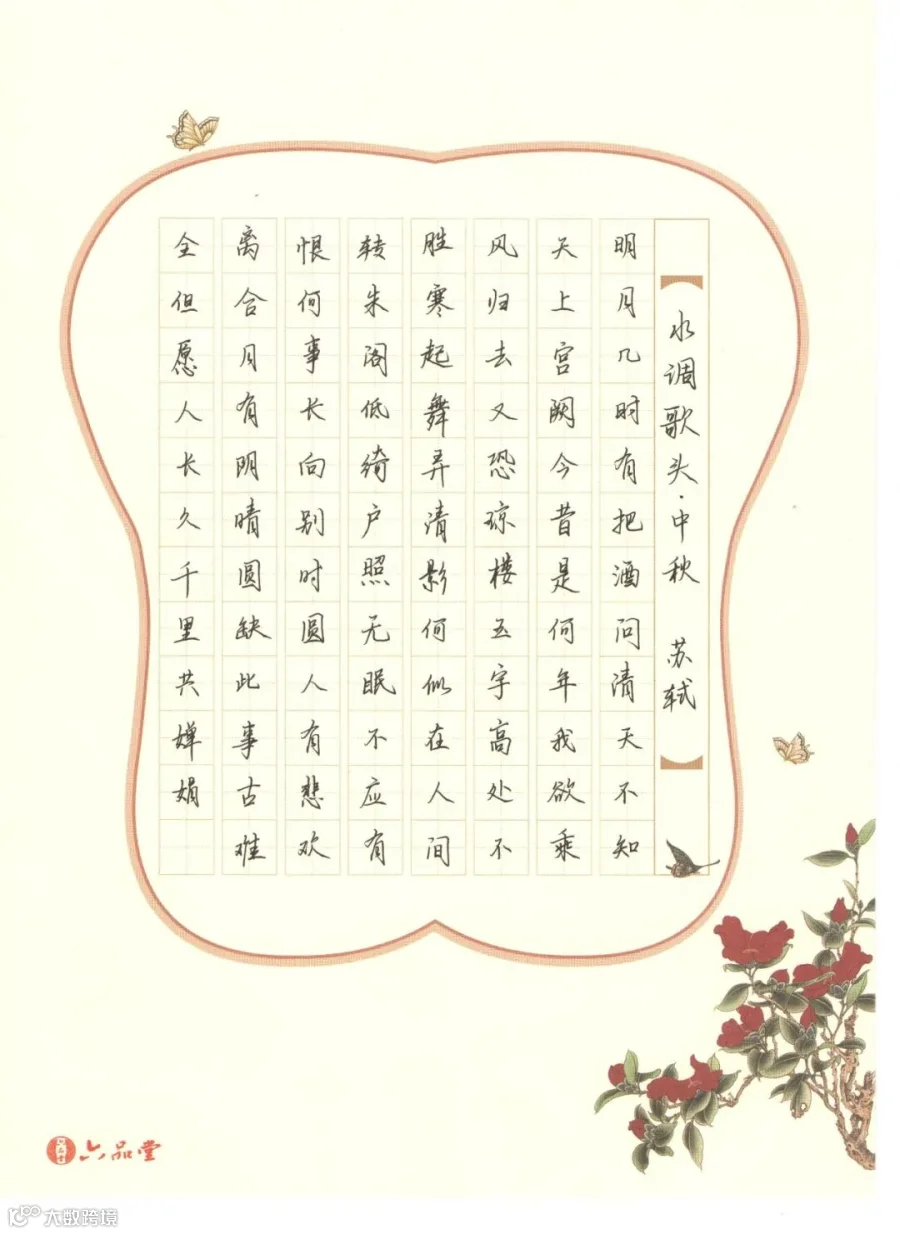 【水调歌头·中秋 苏轼】
明月几时有把酒问清天不知
天上宫阙今昔是何年我欲乘
风归去又恐琼楼玉宇高处不
胜寒起舞弄清影何似在人间
转朱阁低绮户照无眠不应有
恨何事长向别时圆人有悲欢
离合月有阴晴圆缺此事古难
全但愿人长久千里共婵娟
六品堂
大数跨境